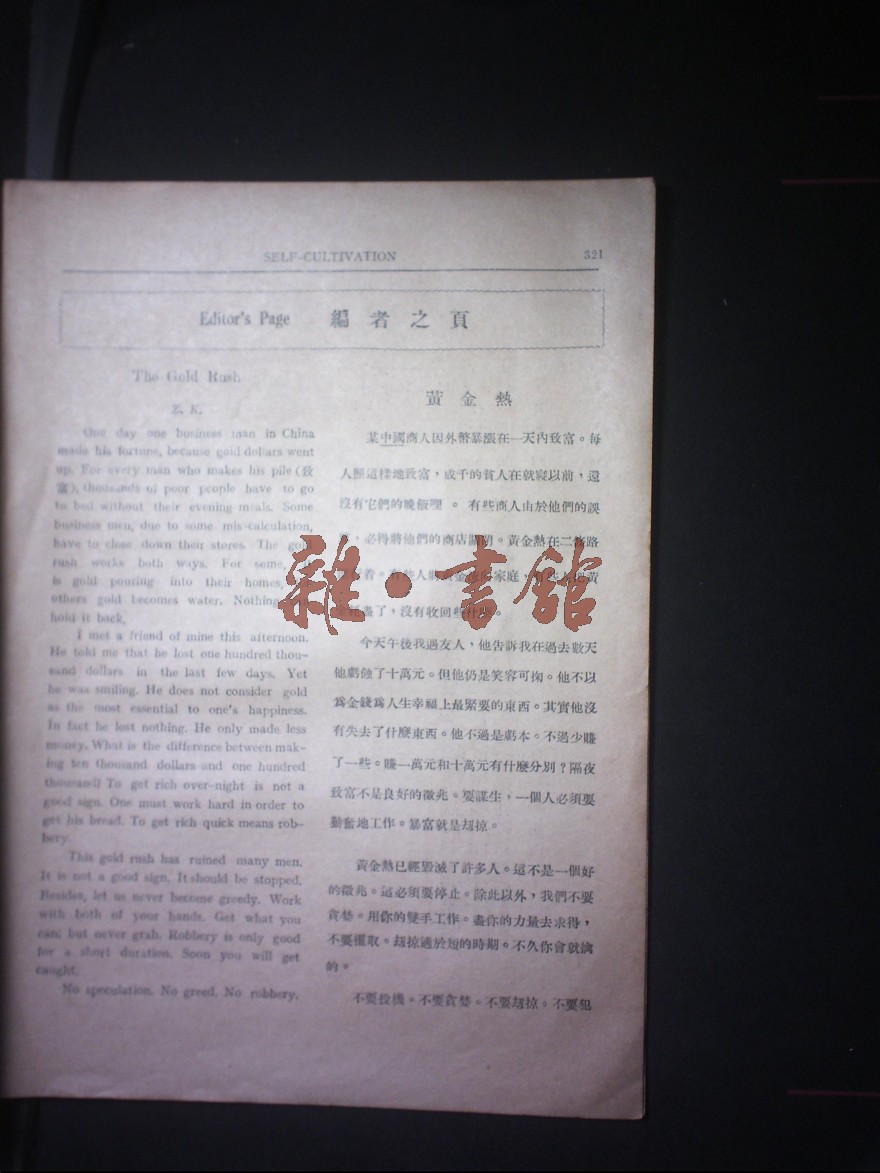 SELF-CULTIVATION 321
Editor's Page 編者之頁
The Gold Rush
Z. K.
One day one business man in China
made his fortune, because gold dollars went
up. For every man who makes his pile (致
富), thousands of poor people have to go
to bed without their evening meals. Some
business men, due to some mis-calculation,
have to close down their stores. The gold
rush works both ways. For some,
is gold pouring into their homes,
others gold becomes water. Nothing
hold it back.
I met a friend of mine this afternoon.
He told me that he lost one hundred thou-
sand dollars in the last few days. Yet
he was smiling. He does not consider gold
as the most essential to one's happiness.
In fact he lost nothing. He only made less
money. What is the difference between mak-
ing ten thousand dollars and one hundred
thousand? To get rich over-night is not a
good sign. One must work hard in order to
get his bread. To get rich quick means rob-
bery.
This gold rush has ruined many men.
It is not a good sign. It should be stopped.
Besides, let us never become greedy. Work
with both of your hands. Get what you
can; but never grab. Robbery is only good
for a short duration. Soon you will get
caught.
No speculation. No greed. No robbery.
黃金熱
某中國商人因外幣暴漲在一天內致富。每
人照這樣地致富,成千的貧人在就寢以前,還
沒有它們的晚飯哩。有些商人由於他們的誤
,必得將他們的商店關閉。黃金熱在二條路
着。有些人將黃金 家庭,有些 黃
盡了,沒有收回些什麼。
今天午後我遇友人,他告訴我在過去數天
他虧蝕了十萬元。但他仍是笑容可掬。他不以
爲金錢爲人生幸福上最緊要的東西。其實他沒
有失去了什麼東西。他不過是虧本。不過少賺
了一些。賺一萬元和十萬元有什麼分別?隔夜
致富不是良好的徵兆。要謀生,一個人必須要
勤奮地工作。暴富就是刼掠。
黃金熱已經毀滅了許多人。這不是一個好
的徵兆。這必須要停止。除此以外,我們不要
貪婪。用你的雙手工作。盡你的力量去求得,
不要攫取。刼掠適於短的時期。不久你會就擒
的。
不要投機。不要貪婪。不要刼掠。不要犯
雜·書館